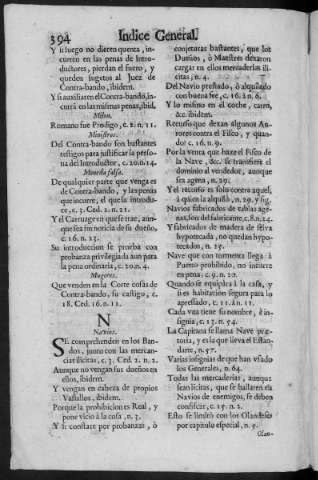 394 Indice General.
Y si luego no dieren quenta, incurren en las penas de Introductores, pierdan el fuero, y queden sujetos al Juez de Contra-bando, ibidem.
Y si auxiliaren el Contra-bando, incurrà en las mismas penas, ibid.
Milan.
Romano fue Prodigo, c. 2. n. 11.
Ministros.
Del Contra-bando son bastantes testigos para justificar la persona del Introductor, c. 20. n. 14.
Moneda falsa.
De qualquier parte que venga es de Contra-bando, y las penas que incurre, el que la introduce, c. 3. Ced. 2. n. 21.
Y el Carruagero que se trae, aunque sea sin noticia de su dueño, c. 16. n. 23.
Su introduccion se prueba con probança privilegiada aun para la pena ordinaria, c. 20. n. 4.
Mugeres.
Que venden en la Corte cosas de Contra-bando, su castigo, c. 18. Ced. 16. n. 11.
N
Navios.
SE comprehenden en los Bandos, junto con las mercancias ilicitas, c. 3. Ced. 2. n. 2.
Aunque no vengan sus dueños en ellos, ibidem.
Y vengan en cabeza de propios Vassallos, ibidem.
Porque la prohibicion es Real, y pone vicio à la cosa, n. 3.
Y si constare por probanzas, ò
conjeturas bastantes, que los Dueños, ò Maestres dexaron cargar en ellos mercaderias ilicitas, n. 4.
Del Navio prestado, ò alquilado con buena fee, c. 16. à n. 6.
Y lo mismo en el coche, carro, &c. ibidem.
Recurso que dexan algunos Autores contra el Fisco, y quando? c. 16. n. 9.
Por la venta que haze el Fisco de la Nave, &c. se transfiere el dominio al vendedor, aunque sea agena, n. 29.
Y el recurso es solo contra aquel, à quien la alquilò, n. 29. y sig.
Navios fabricados de tablas agenas, son del fabricante, c. 8. n. 24.
Y fabricados de madera de selva hypotecada, no quedan hypotecados, n. 25.
Nave que con tormenta llega à Puerto prohibido, no incurre en pena, c. 9. n. 20.
Quando se equipàra à la casa, y si es habitacion segura para lo aprestado, c. 11. à n. 11.
Cada vna tiene su nombre, è insignia, c. 13. n. 54.
La Capitana se llama Nave pretoria, y es la que lleva el Estandarte, n. 57.
Varias insignias de que han vsado los Generales, n. 64.
Todas las mercaderias, aunque sean licitas, que se hallaren en Navios de enemigos, se deben confiscar, c. 15. n. 2.
Esto se limitò con los Olandeses por capitulo especial, n. 5.
Olan-